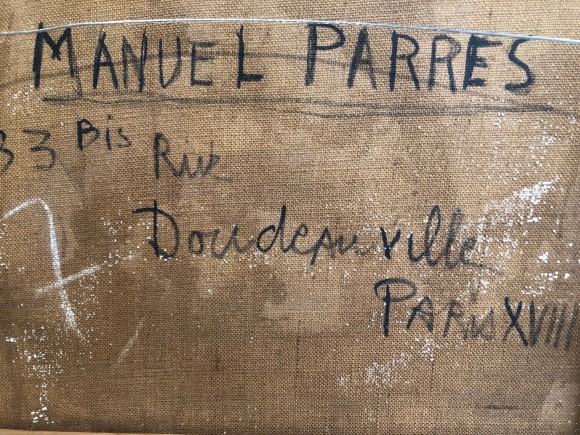 MANUEL PARRES
33 Bis Rue
Doudeauville
PARis XVIII
7